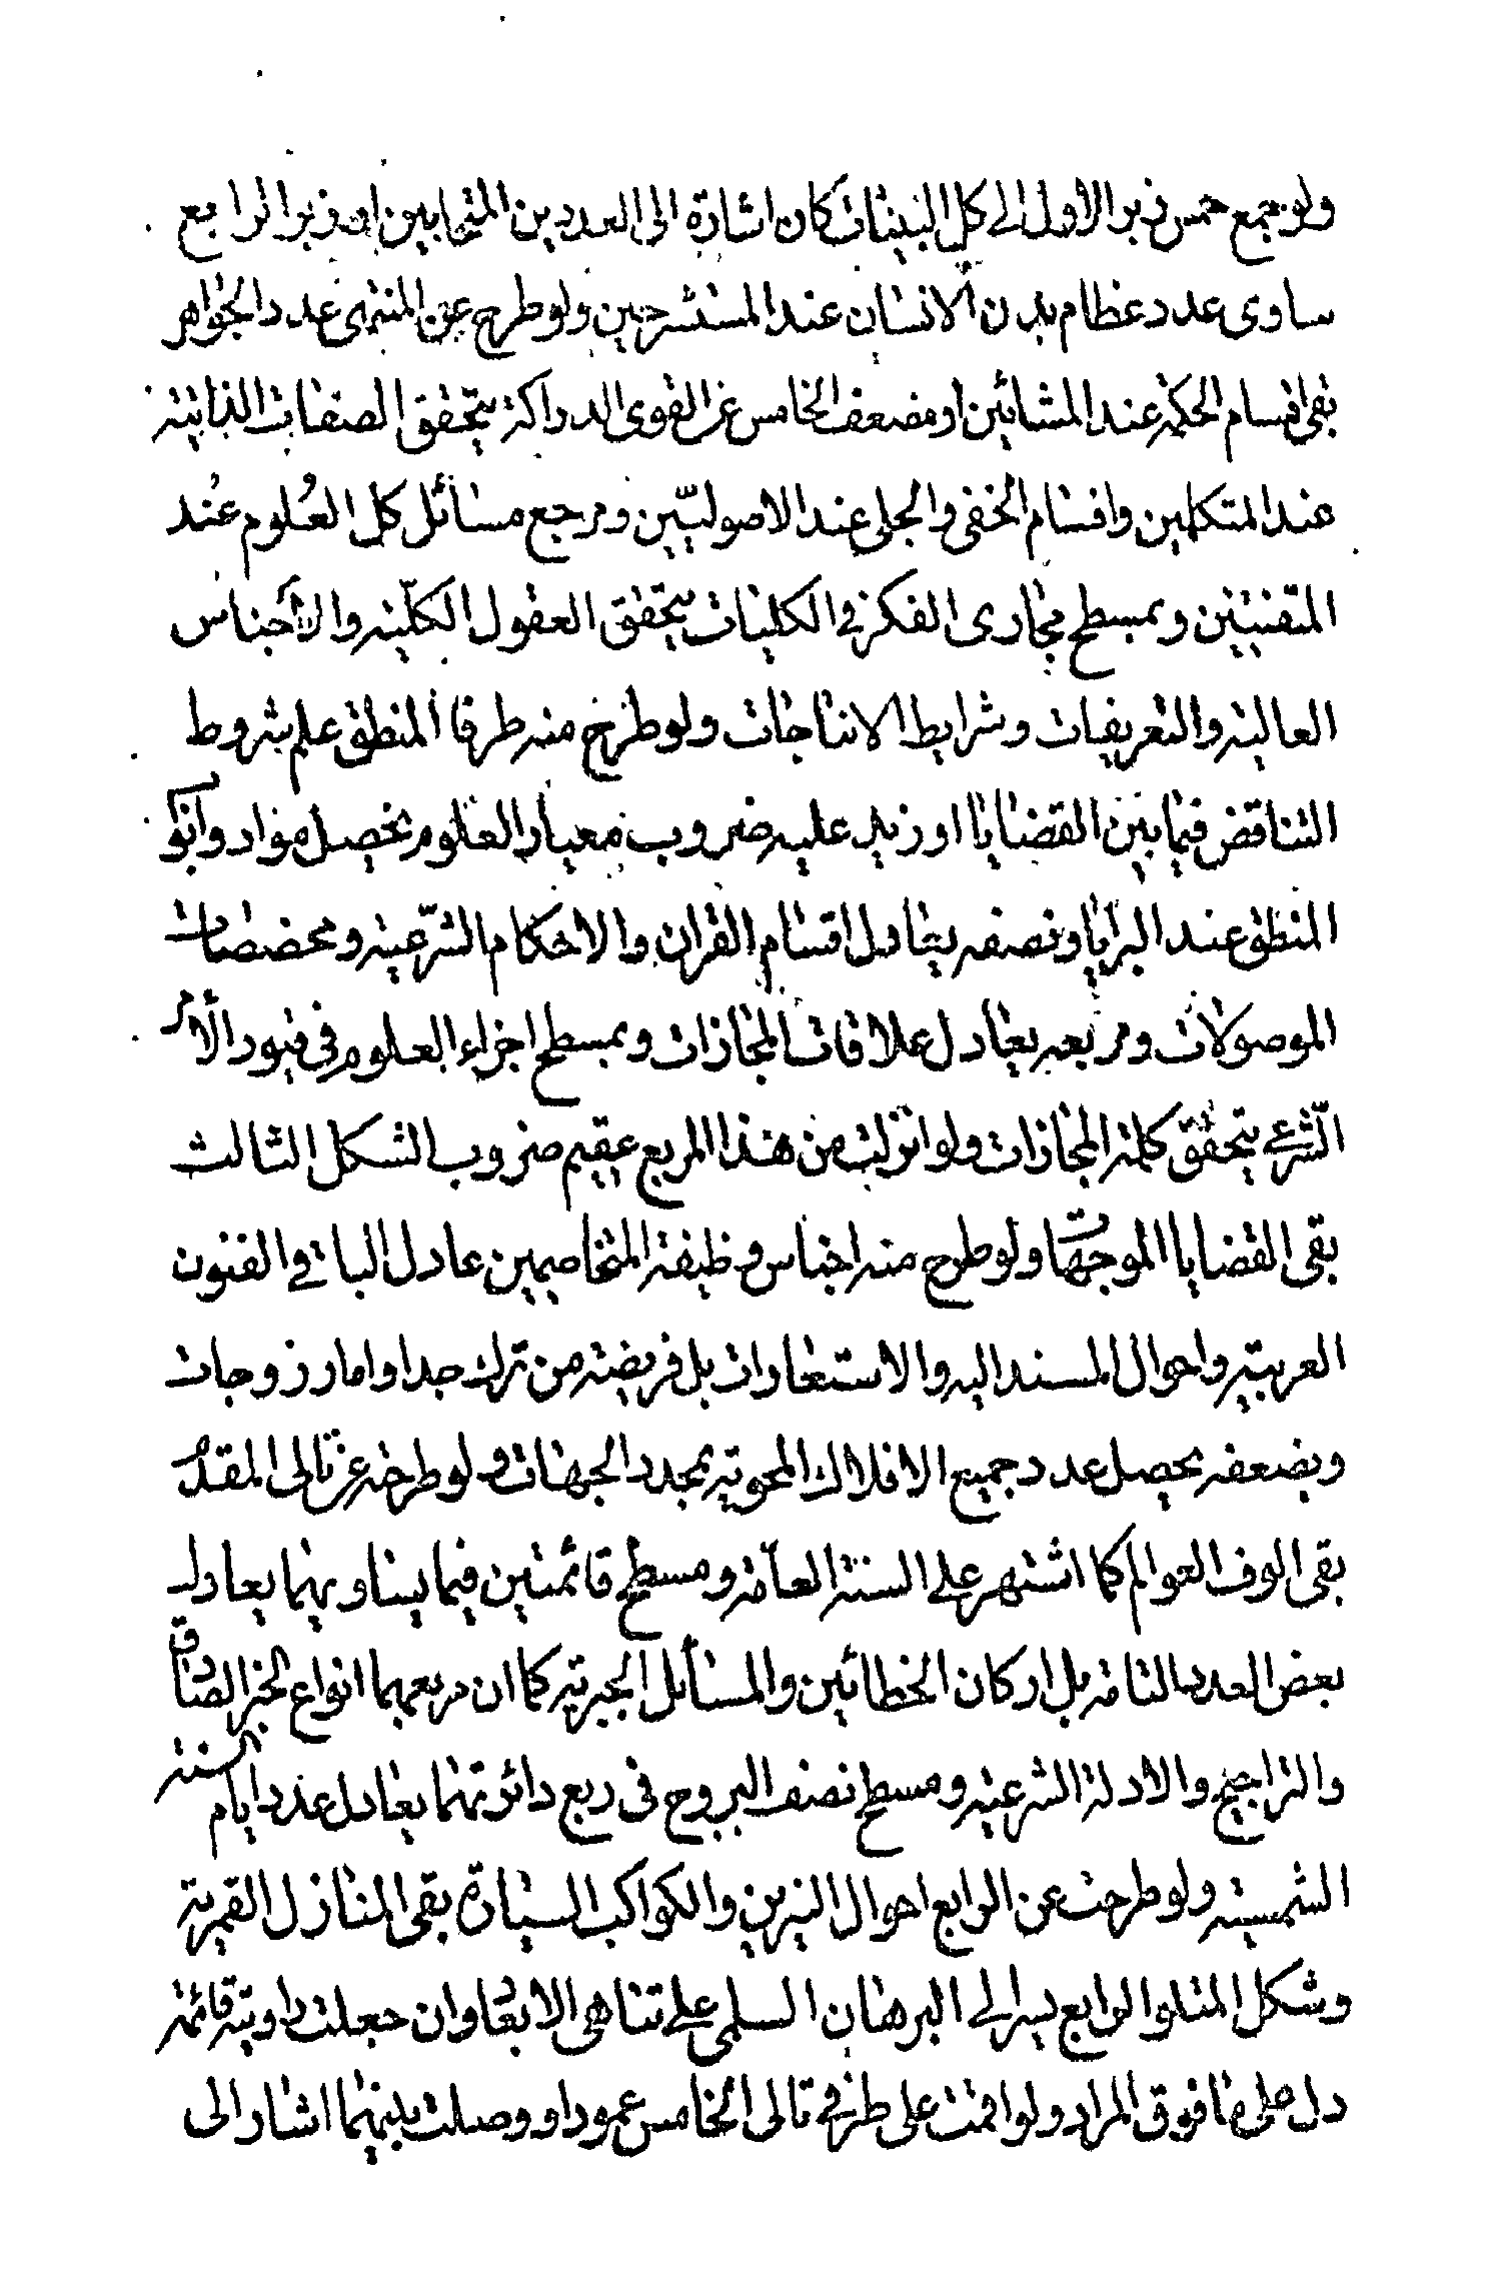 ولو جمع خمس زبر الاول الى كل البينات كان اشارة الى العددين المتحابين او زبر الرابع
ساوى عدد عظام بدن الانسان عند المستشرحين ولو طرح عن المنتهى عدد الجواهر
بقى اقسام الحكمة عند المشائين او مضعف الخامس عن القوى الدراكة يتحقق الصفات الذاتية
عند المتكلمين واقسام الخفى والجلى عند الاصوليّين ومرجع مسائل كل العُلوم عُند
المتقنين وبمسطح مجارى الفكر فى الكليات يتحقق العقول الكلّية والأجناس
العالية والتعريفات وشرايط الانتاجات ولو طرح منه طرفا المنطق علم بشروط
التناقض فيما بين القضايا او زيد عليه ضروب معيار العلوم يحصل مواد وابوا
المنطق عند البرايا ونصفه يعادل اقسام القران والاحكام الشرّعية ومخصصات
الموصولات ومربعه يعادل علاقات المجازات وبمسطح اجزاء العلوم فى قيود الأمر
الشّرعى يتحقق كلمة المجازات ولو انزلت من هذا المربع عقيم ضروب الشكل الثالث
بقى القضايا الموجهات ولو طرح منه اجناس وظيفة المتخاصمين عادل الباقى الفنون
العربية واحوال المسند اليه والاستعارات بل فريضة من ترك جدا واما رزوجات
وبضعفه يحصل عدد جميع الافلاك المحوية بمحدد الجهات ولو طرحته عن تالى المقدّ
بقى الوف العوالم كما اشتهر على السنة العامّة ومسطح قائمتين فيما يساويهما يعادل
بعض العدد التامة بل اركان الخطائين والمسائل الجبرية كما ان مربعهما انواع الخبر الصادق
والتراجيح والادلة الشرعية ومسطح نصف البروج فى ربع دائرتهما يعادل عدد ايام السنة
الشمسية ولو طرحت عن الرابع احوال النيرين والكواكب السيارة بقى المنازل القمرية
وشكل المتلو الرابع يسير الى البرهان السلمى على تناهى الابعاد وان جعلت زاويته قائمة
دل على ما فوق المراد ولو اقمت على طرفى تالى الخامس عمودا ووصلت بينهما اشار الى